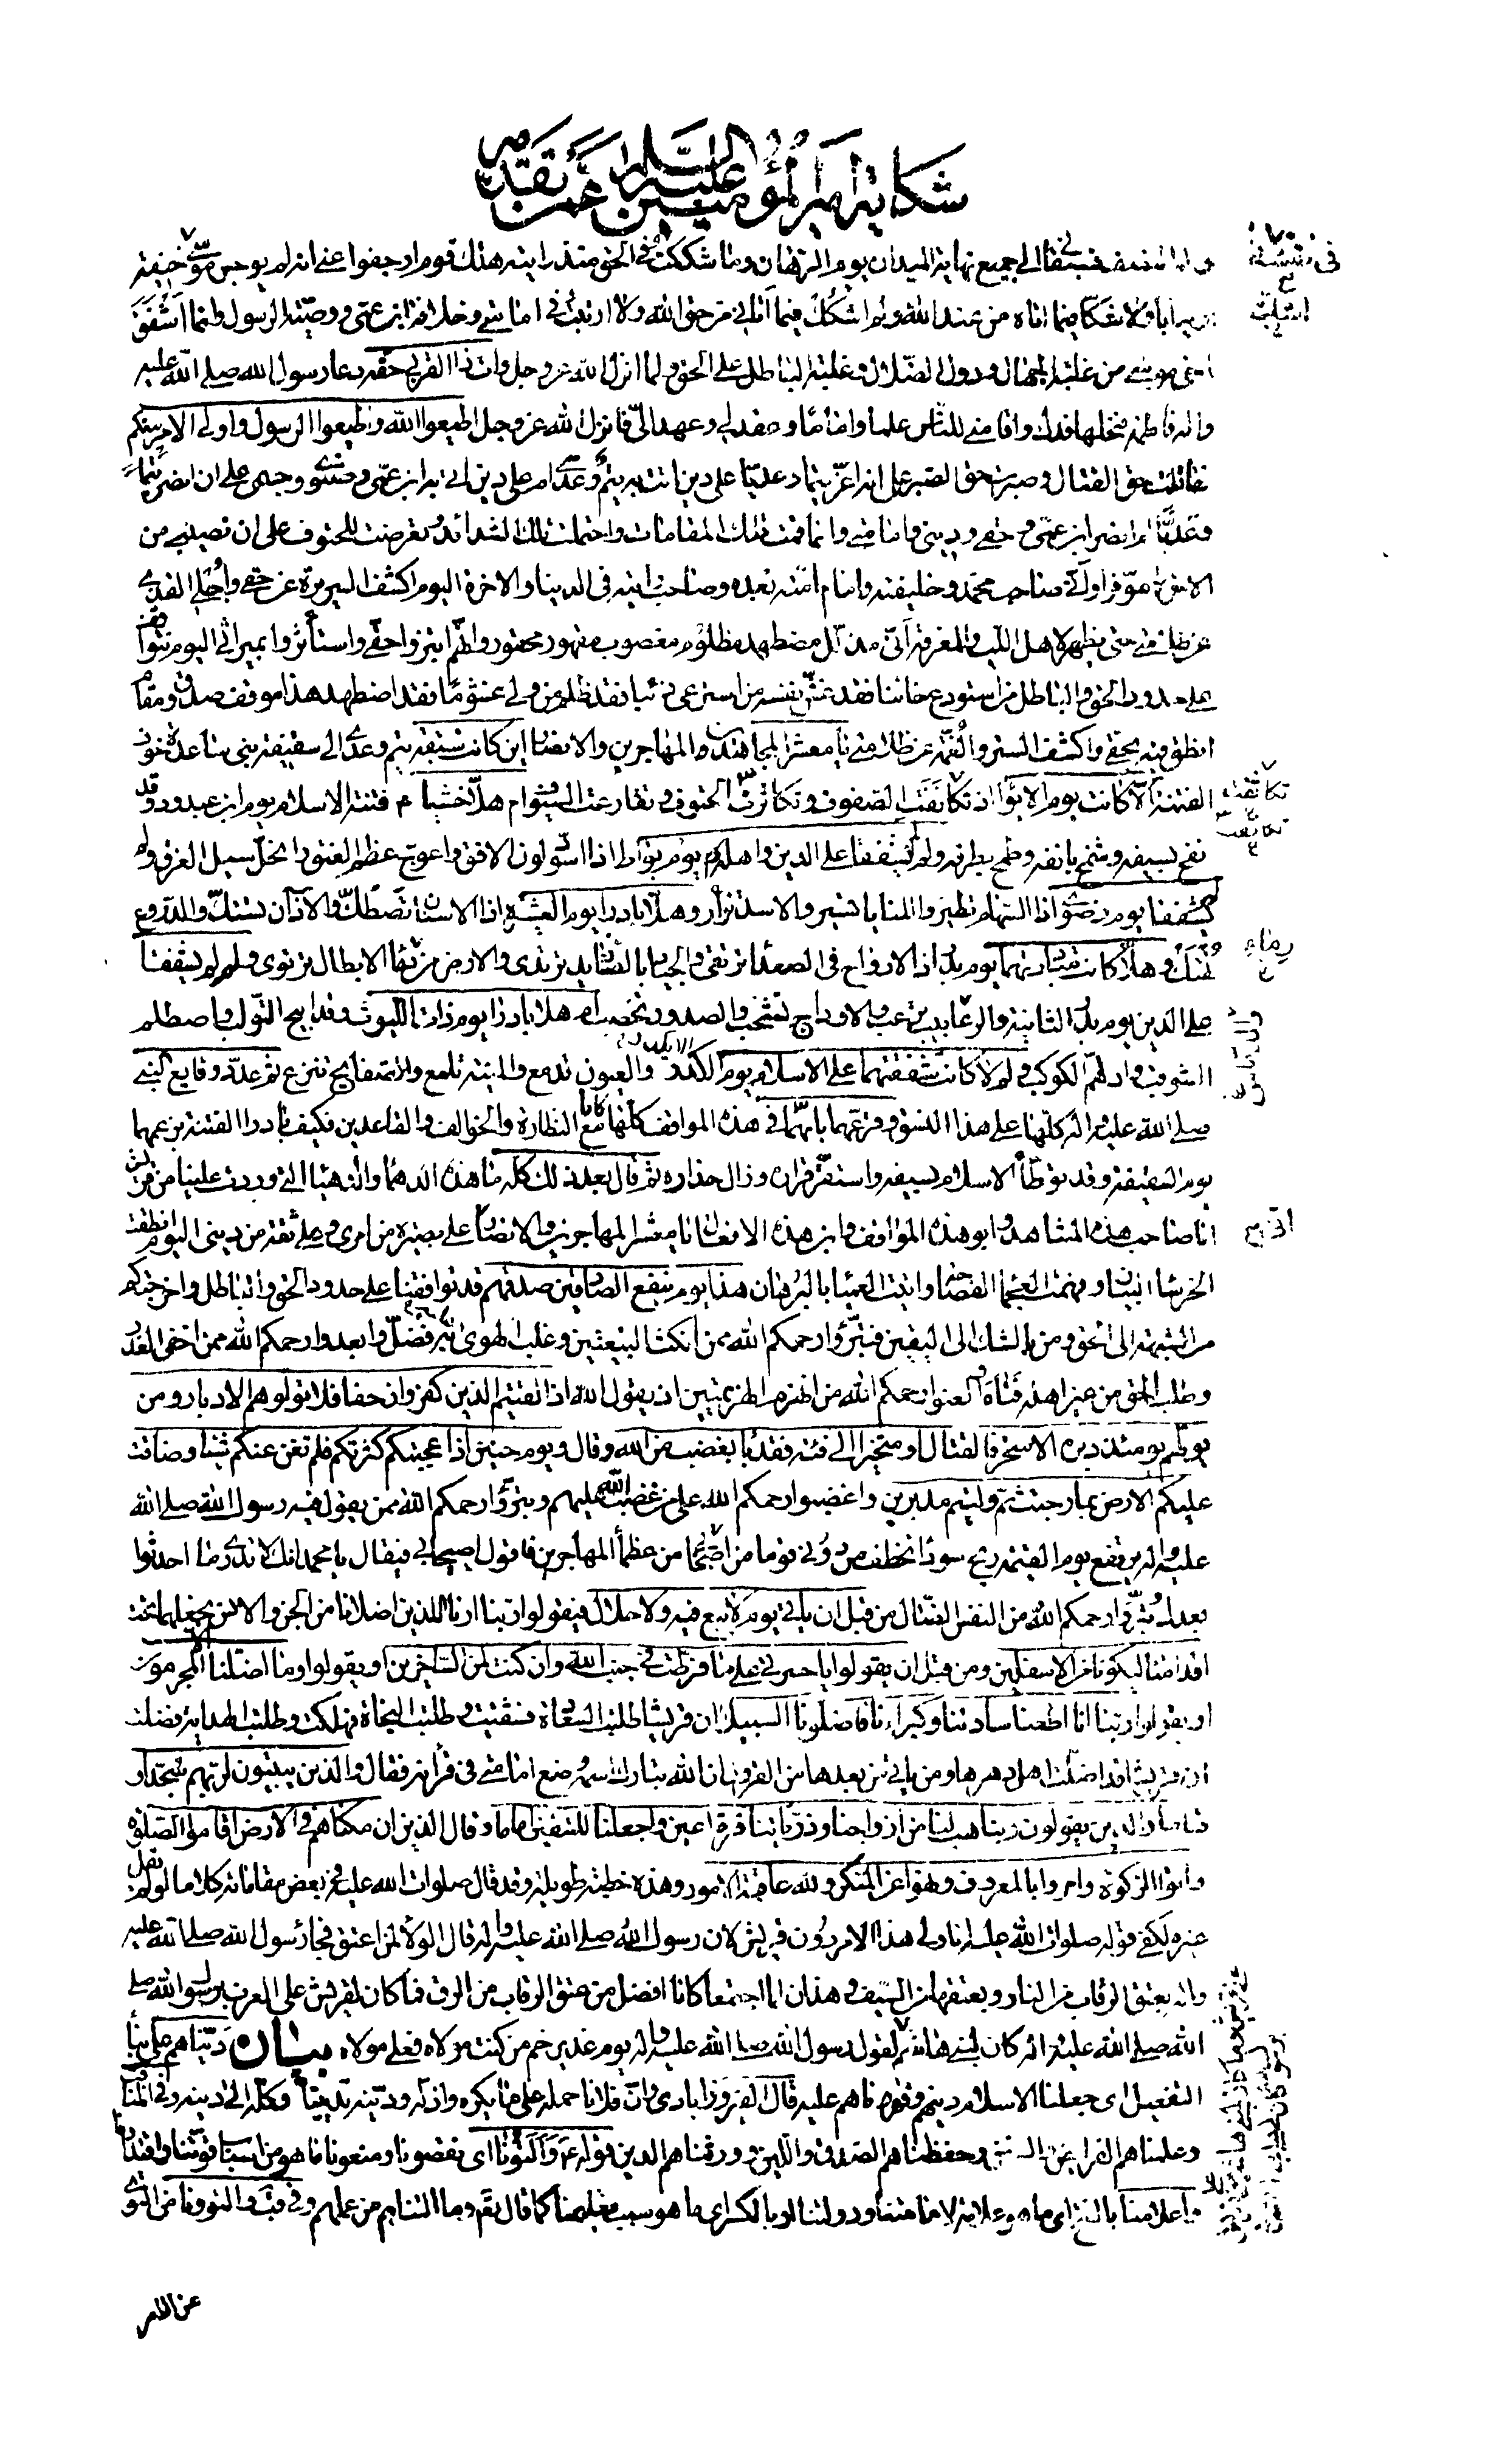 شكاية امير المؤمنين عليه السلام عمن تقدمه
فسبقا الى جميع نهاية الميدان يوم الرهان وما شككت في الحق منذ رايته هلك قوم ارجفوا عني انه لم يوجس موسى في نفسه خيفة
ولا شكا فيما اتاه من عند الله ولم اشكك فيما اتاني من حق الله ولا ارتبت في امامتي وخلافة ابن عمي ووصية الرسول وانما اشفق
اخي موسى من غلبة الجهال ودول الضلال وغلبة الباطل على الحق ولما انزل الله عز وجل وات ذا القربى حقه دعا رسول الله صلى الله عليه
واله فاطمة فنحلها فدك واقامني للناس علما واماما وعقد لي وعهد الي فانزل الله عز وجل اطيعوا الله واطيعوا الرسول واولي الامر منكم
فقاتلت حق القتال وصبرت حق الصبر على انه اعز تيما وعديا على دين اتت به تيم وعدي ام على دين اتى به ابن عمي وصنوي وجسمي على ان انصر تيما
وعديا ام انصر ابن عمي وحقي وديني وامامتي وانما قمت تلك المقامات واحتملت تلك الشدائد وتعرضت للحتوف على ان نصيبي من
الاخرة موفرا واني صاحب محمد وخليفته وامام امته بعده وصاحب رايته في الدنيا والاخرة اليوم اكشف السريرة عن حقي واجلي القذى
عن ظلامتي حتى يظهر لاهل اللب والمعرفة اني مذلل مضطهد مظلوم مغصوب مقهور محقور وانهم ابتزوا حقي واستأثروا بميراثي اليوم نتواقف
على حدود الحق والباطل من استودع خائنا فقد غش نفسه من استرعى ذئبا فقد ظلم من ولي غشوما فقد اضطهد هذا موقف صدق ومقام
انطق فيه بحقي واكشف الستر والغمة عن ظلامتي يا معشر المجاهدين المهاجرين والانصار اين كانت سبقة تيم وعدي الى سقيفة بني ساعدة خوف
الفتنة الا كانت يوم الابواء اذ تكاثفت الصفوف وتكاثرت الحتوف وتقارعت السيوف ام هلا خشيا فتنة الاسلام يوم ابن عبد ود وقد
نفح بسيفه وشمخ بانفه وطمح بطرفه ولم لم يشفقا على الدين واهله يوم بواط اذا اسود لون الافق واعوج عظم العنق وانحل سيل الغرق ولم
يشفقا يوم رضوى اذا السهام تطير والمنايا تسير والاسد تزأر وهلا بادرا يوم العشيرة اذا الاسنان تصطك والاذان تستك والدروع
تهتك وهلا كانت مبادرتهما يوم بدر اذ الارواح في الصعداء ترتقي والجياد بالصناديد ترتدي والارض من دماء الابطال ترتوي ولم لم يشفقا
على الدين يوم بدر الثانية والرعابيب ترعب والاوداج تشخب والصدور تخضب ام هلا بادرا يوم ذات الليوث وقد ابيح التولب واصطلم
الشوقب وادلهم الكوكب ولم لا كانت شفقتهما على الاسلام يوم الكدر والعيون تدمع والمنية تلمع والصفايح تنزع ثم عدد وقايع النبي
صلى الله عليه واله كلها على هذا النسق وقرعهما بانهما في هذه المواقف كلها كانا مع النظارة والخوالف والقاعدين فكيف بادرا الفتنة بزعمهما
يوم السقيفة وقد توطأ الاسلام بسيفه واستقر قراره وزال حذاره ثم قال بعد ذلك كله ما هذه الدهماء والدهياء التي وردت علينا من قريش
انا صاحب هذه المشاهد وابو هذه المواقف وابن هذه الافعال يا معشر المهاجرين والانصار اني على بصيرة من امري وعلى ثقة من ديني اليوم انطقت
الخرساء البيان وفهمت العجماء الفصاحة واتيت العمياء بالبرهان هذا يوم ينفع الصادقين صدقهم قد توافقنا على حدود الحق والباطل واخرجتكم
من الشبهة الى الحق ومن الشك الى اليقين فتبرؤا رحمكم الله ممن نكث البيعتين وغلب الهوى به فضل وابعدوا رحمكم الله ممن اخفى الغدر
وطلب الحق من غير اهله فتاه والعنوا رحمكم الله من انهزم الهزيمتين اذ يقول الله اذا لقيتم الذين كفروا زحفا فلا تولوهم الادبار ومن
يولهم يومئذ دبره الا متحرفا لقتال او متحيزا الى فئة فقد باء بغضب من الله وقال ويوم حنين اذ اعجبتكم كثرتكم فلم تغن عنكم شيئا وضاقت
عليكم الارض بما رحبت ثم وليتم مدبرين واغضبوا رحمكم الله على من غضب الله عليهم وتبرؤا رحمكم الله ممن يقول فيه رسول الله صلى الله
عليه واله يرتفع يوم القيمة ريح سوداء تخطف من دوني قوما من اصحابي من عظماء المهاجرين فاقول اصيحابي فيقال يا محمد انك لا تدري ما احدثوا
بعدك وتبرؤا رحمكم الله من النفس الضال من قبل ان ياتي يوم لا بيع فيه ولا خلال فيقولوا ربنا ارنا اللذين اضلانا من الجن والانس نجعلهما تحت
اقدامنا ليكونا من الاسفلين ومن قبل ان يقولوا يا حسرتى على ما فرطت في جنب الله وان كنت لمن الساخرين او يقولوا وما اضلنا الا المجرمون
او يقولوا ربنا انا اطعنا سادتنا وكبراءنا فاضلونا السبيلا ان قريشا طلبت السعادة فشقيت وطلبت النجاة فهلكت وطلبت الهداية فضلت
ان قريشا قد اضلت اهل دهرها ومن ياتي من بعدها من القرون ان الله تبارك اسمه وضع امامتي في قرآنه فقال والذين يبيتون لربهم سجدا و
قياما والذين يقولون ربنا هب لنا من ازواجنا وذرياتنا قرة اعين واجعلنا للمتقين اماما وقال الذين ان مكناهم في الارض اقاموا الصلوة
واتوا الزكوة وامروا بالمعروف ونهوا عن المنكر ولله عاقبة الامور وهذه خطبة طويلة وقد قال صلوات الله عليه في بعض مقاماته كلاما لو لم يقل
غيره لكفى قوله صلوات الله عليه انا ولي هذا الامر دون قريش لان رسول الله صلى الله عليه واله قال الولاء لمن اعتق فجاء رسول الله صلى الله عليه
واله بعتق الرقاب من النار وبعتقها من السيف وهذان لما اجتمعا كانا افضل من عتق الرقاب من الرق فما كان لقريش على العرب برسول الله صلى
الله صلى الله عليه واله كان لبني هاشم لقول رسول الله صلى الله عليه واله يوم غدير خم من كنت مولاه فعلي مولاه بيان دنياهم على بناء
التفعيل اى جعلنا الاسلام دينهم وقررناهم عليه قال الفيروزآبادى دان فلانا حمله على ما يكره واذله ودينه تديينا وكله الى دينه
وعلمناهم الفرايض وحفظناهم الصدق واللين وورثناهم الدين قوله ع والتونا اى نقصونا ومنعونا ما هو من اسباب قوتنا واقتدارنا
واعلامنا ما هو علامة لامامتنا ودولتنا او بالكسر اى ما هو سبب تعليمنا كما قال تعم وما التناهم من عملهم
عن الامر